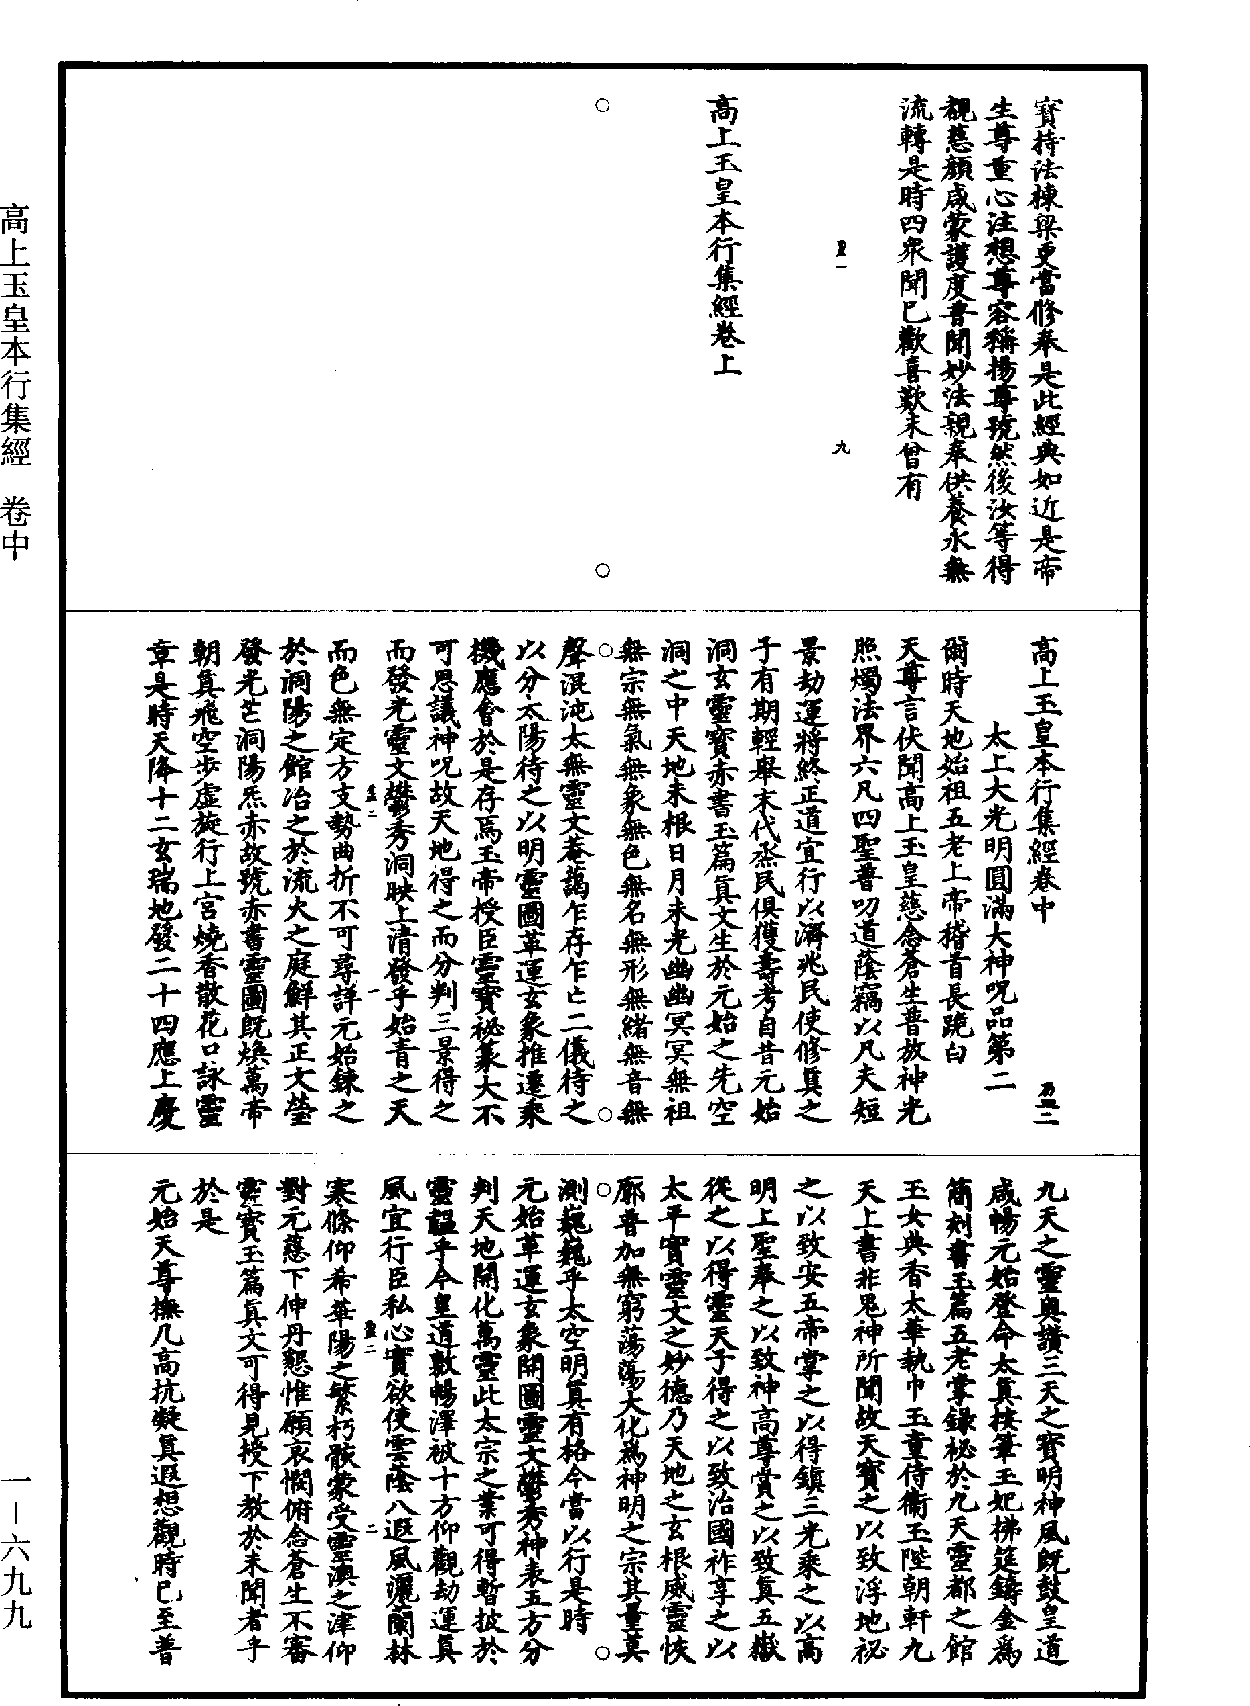 寶持法棟梁更當修奉是此經典如近是帝
生尊重心注想尊容稱揚尊號然後汝等得
覩慈顏咸蒙護度普聞妙法親奉供養永無
流轉是時四衆聞已歡喜歎未曾有
九
高上玉皇本行集經卷上
高上玉皇本行集經卷中
太上大光明圓滿大神呪品第二
爾時天地始祖五老上帝稽首長跪白
天尊言伏聞高上玉皇慈念蒼生普放神光
照燭法界六凡四聖普叨道蔭竊以凡夫短
景劫運將終正道宜行以濟兆民使修真之
子有期輕舉末代烝民俱獲壽考自昔元始
洞玄靈寶赤書玉篇眞文生於元始之先空
洞之中天地未根日月未光幽幽冥冥無祖
無宗無氣無象無色無名無形無緒無音無
聲混沌太無靈文菴藹乍存乍亡二儀待之
以分太陽待之以明靈圖革運玄象推遷乘
機應會於是存焉玉帝授臣靈寶祕篆大不
可思議神呪故天地得之而分判三景得之
而發光靈文欝秀洞映上清發乎始青之天
而色無定方支勢曲折不可尋詳元始鍊之
於洞陽之館冶之於流火之庭鮮其正文瑩
發光芒洞陽炁赤故號赤書靈圖旣煥萬帝
朝眞飛空步虛旋行上宮燒香散花口詠靈
章是時天降十二玄瑞地發二十四應上慶
九天之靈奧讚三天之寶明神風旣鼓皇道
咸暢元始登命太眞按筆玉妃拂筵鑄金爲
簡刻書玉篇五老掌錄祕於九天靈都之館
玉女典香太華執巾玉童侍衞玉陛朝軒九
天上書非鬼神所聞故天寶之以致浮地祕
之以致安五帝掌之以得鎭三光乘之以高
明上聖奉之以致神高尊賞之以致眞五嶽
從之以得靈天子得之以致治國祚享之以
太平實靈文之妙德乃天地之玄根威靈恢
廓普加無窮蕩蕩大化爲神明之宗其量莫
測巍巍乎太空明眞有格今當以行是時
元始革運玄象開圖靈文欝秀神表五方分
判天地開化萬靈此太宗之業可得暫披於
靈韞乎今皇道敷暢澤被十方仰觀劫運眞
風宜行臣私心實欲使雲蔭八遐風灑蘭林
寒條仰希華陽之繁朽骸蒙受靈澳之津仰
對元慈下伸丹懇惟願哀憫俯念蒼生不審
靈寶玉篇眞文可得見授下教於未聞者乎
於是
元始天尊撫几高抗凝眞遐想觀時已至普
高上玉皇本行集經　卷中
一—六九九